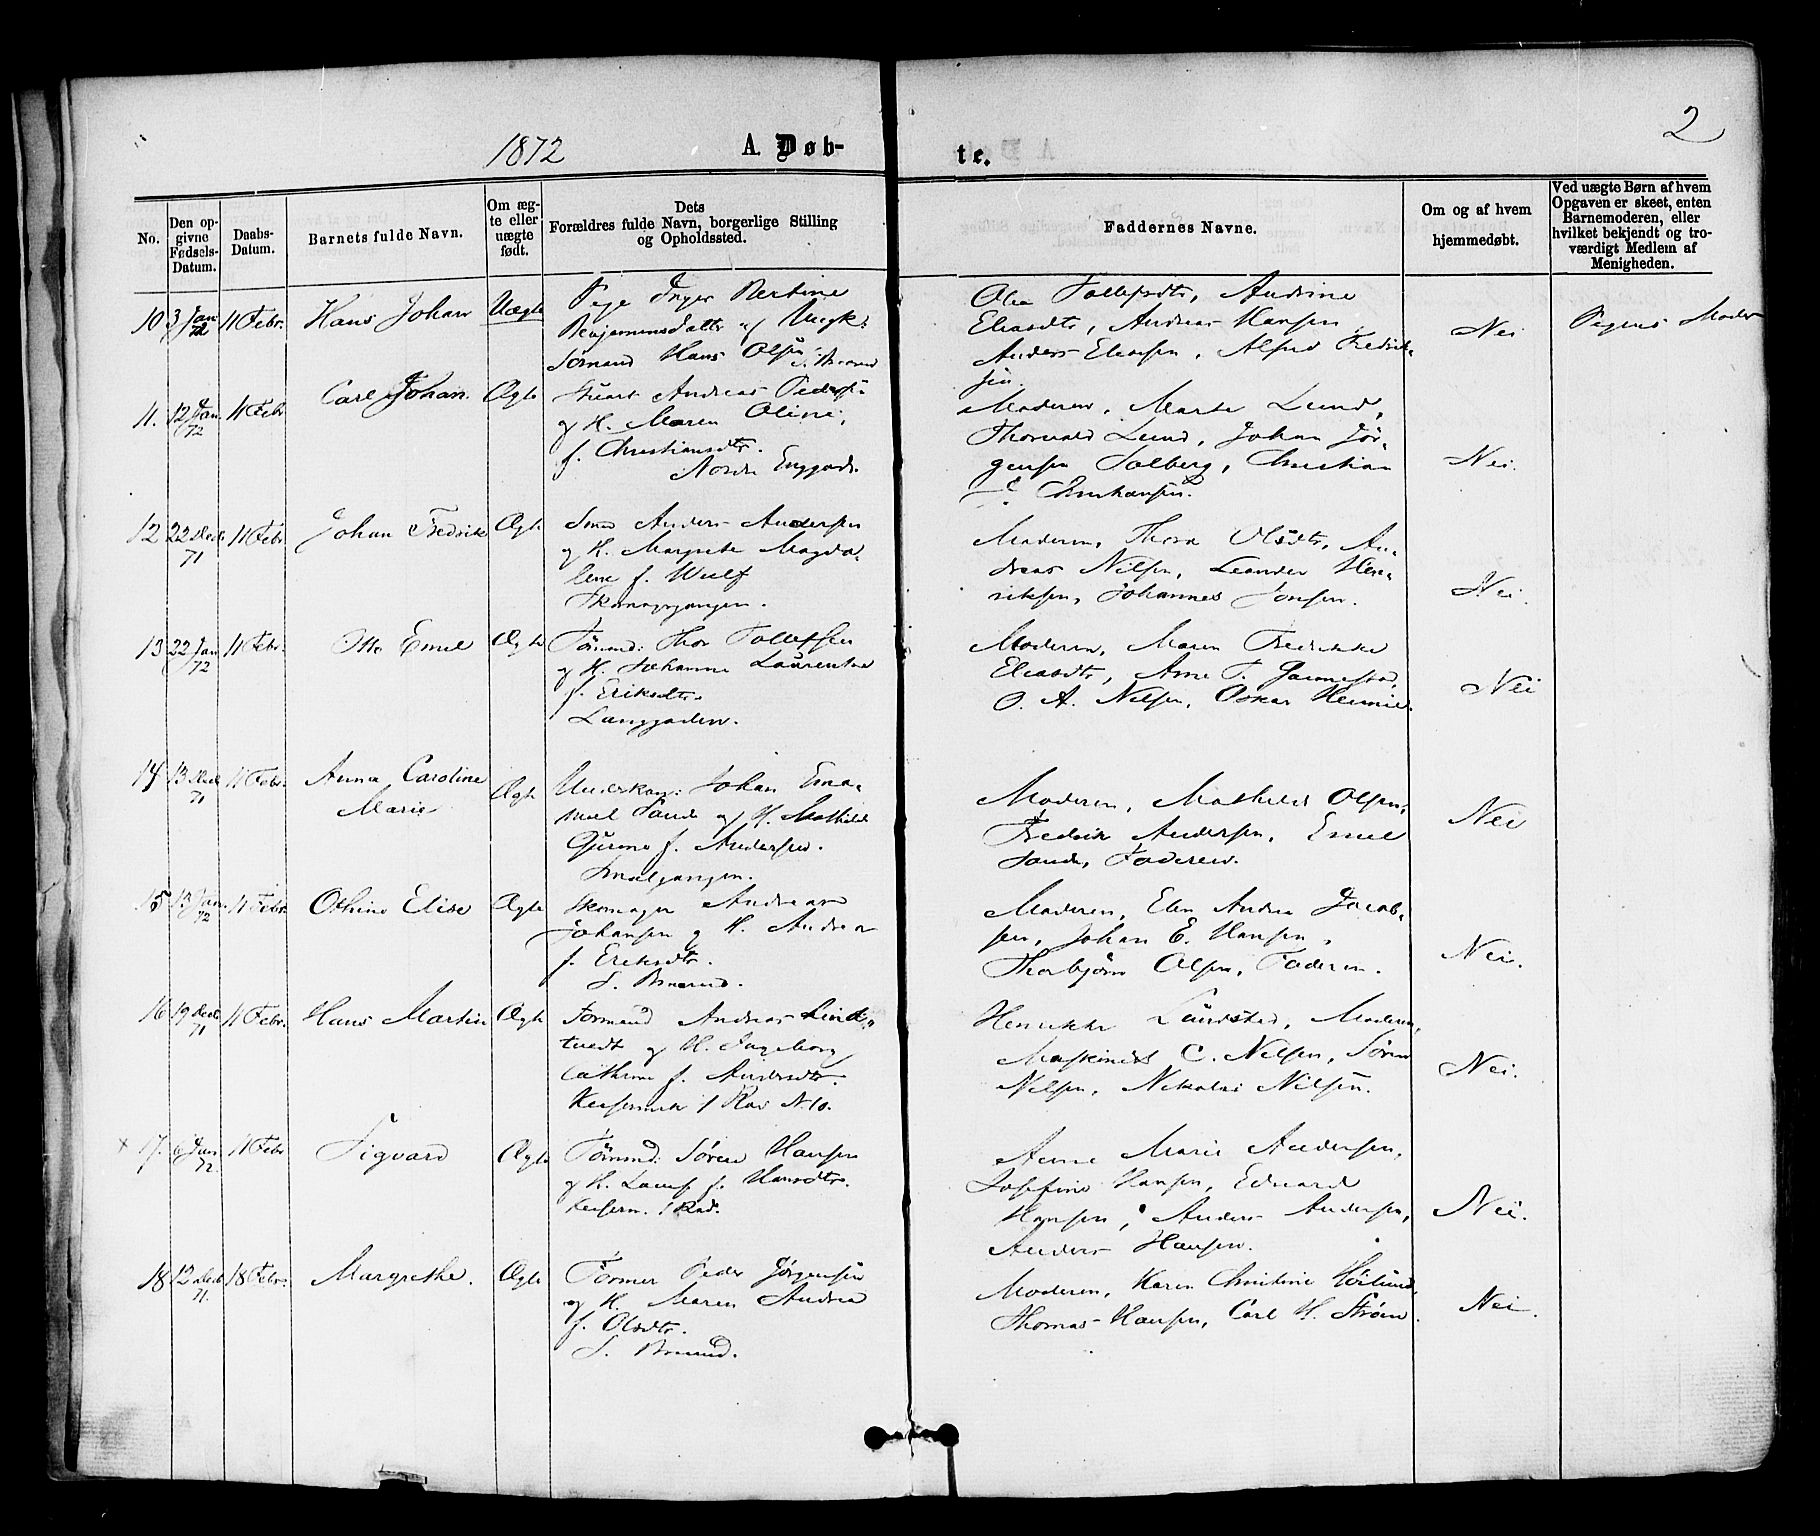 1872 A. Døb- te. 2
No.
Den opgivne Fødsels-Datum.
Daabs-Datum.
Barnets fulde Navn.
Om ægte eller uægte født.
Dets Forældres fulde Navn, borgerlige Stilling og Opholdssted.
Faddernes Navne.
Om og af hvem hjemmedøbt.
Ved uægte Børn af hvem Opgaven er skeet, enten Barnemoderen, eller hvilket bekjendt og troværdigt Medlem af Menigheden.
10 3 Jan 72 11 Febr. Hans Johan Uægte
Pige Inger Bertine
Benjaminsdatter og Ungk:
Sømand Hans Olsen
Tollefsdtr, Andrine
Eliasdtr, Andreas Hansen,
Anders Eliasen, Alfred Fredrik-
sen.
Nei
Pigens Moder
11. 12 Jan 72 11 Febr Carl Johan. Ægte
Andreas Peders:
og H. Maren Oline,
f. Christiansdtr.
Nordre Enggade.
Moderen, Marte Lund,
Thorvald Lund, Johan Jør-
gensen Solberg, Christian
Nei.
12 22 Dec. 71 11 Febr Johan Fredrik Ægte
Smed Anders Andersen
og H. Margrete Magda-
lene f. Wulf
Skomagergangen.
Moderen, Thora Olsdtr, An-
dreas Nilsen, Leander Hen-
riksen, Johannes Jonsen.
Nei.
13 22 Jan 72 11 Febr. Otto Emil Ægte
Sømand: Thor Tollefsen
og H. Johanne Laurentse
f. Eriksdtr.
Langgaden.
Moderen, Maren Fredrikke
Eliasdtr, Arne T.
O. A. Nilsen, Oskar
Nei
14 13 Dec 71 11 Febr. Anna Caroline
Marie
Ægte
Underkan: Johan Ema-
nuel Sande og H. Mathilde
Gurine f. Andersen.
Smalgangen.
Moderen, Mathilde Olsen,
Fredrik Andersen, Emil
Sande, Faderen.
Nei
15 13 Jan. 72 11 Febr Othine Elise Ægte
Skomager Andreas
Johansen og H. Andrea
f. Eriksdtr.
Moderen, Elen Andrea Jacob-
sen, Johan E. Hansen,
Thorbjørn Olsen, Faderen.
Nei.
16 19 Dec. 71 11 Febr. Hans Martin Ægte
Formand Andreas Lind-
tvedt og H. Ingeborg
Cathrine f. Andersdtr.
1 Rad N. 10.
Henrikke Lundsted, Moderen,
Maskinist C. Nilsen, Søren
Nilsen, Nikolai Nilsen.
Nei.
x 17. 6 Jan 72. 11 Febr Sigvard Ægte
Sømand: Søren Hansen
og H. f. Hansdtr.
1 Rad.
Anne Marie Andersen,
Josefine Hansen, Edvard
Hansen, Anders Andersen,
Anders Hansen.
Nei.
18 12 Dec 71. 18 Febr. Margrethe. Ægte
Former Peder Jørgensen
og H. Maren Andrea
f. Olsdtr.
Moderen, Karen Christine
Thomas Hansen, Carl H. Strøm.
Nei.